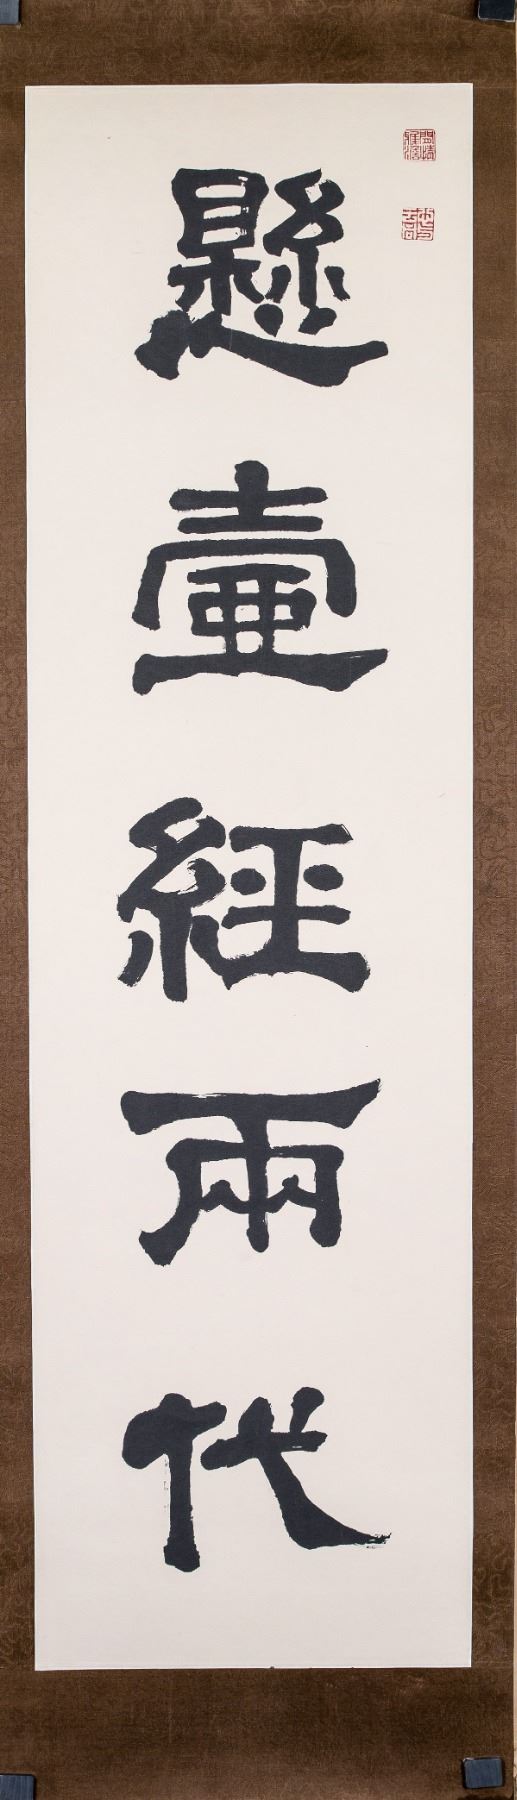 懸壺經兩代